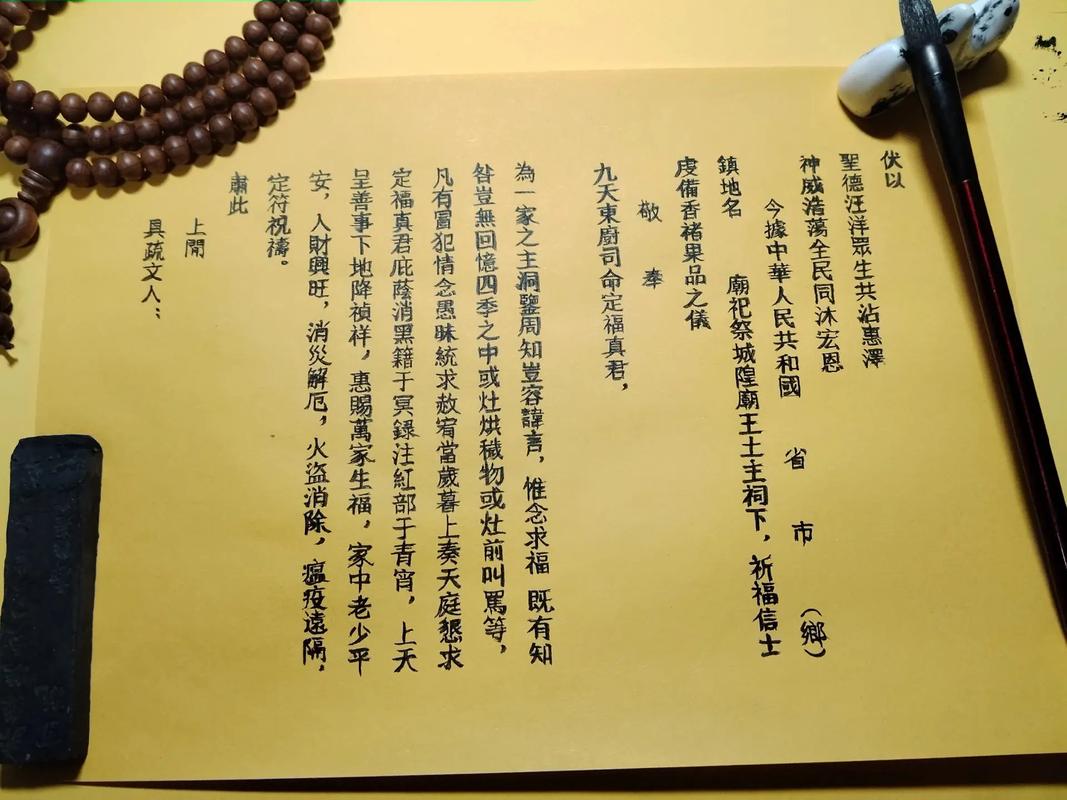 伏以
聖德汪洋眾生共沾惠澤
神威浩蕩全民同沐宏恩
今據中華人民共和國 省 市 （鄉）
鎮地名 廟祀祭城隍廟王土主祠下，祈福信士
虔備香褚果品之儀
敬 奉
九天東廚司命定福真君，
為一家之主洞鑒周知豈容諱言，惟念求福 既有知
咎豈無回憶四季之中或灶烘穢物或灶前叫罵等，
凡有冒犯情念愚昧統求赦宥當歲暮上奏天庭懇求
定福真君庇蔭消黑籍于冥錄注紅部于青宵，上天
呈善事下地降禎祥，惠賜萬家生福，家中老少平
安，人財興旺，消災解厄，火盜消除，瘟疫遠隔，
定符祝禱。
肅此
上聞
具疏文人：